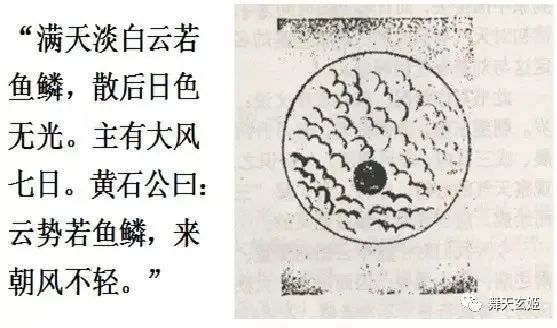 “满天淡白云若
鱼鳞，散后日色
无光。主有大风
七日。黄石公曰：
云势若鱼鳞，来
朝风不轻。”
舞天玄姬